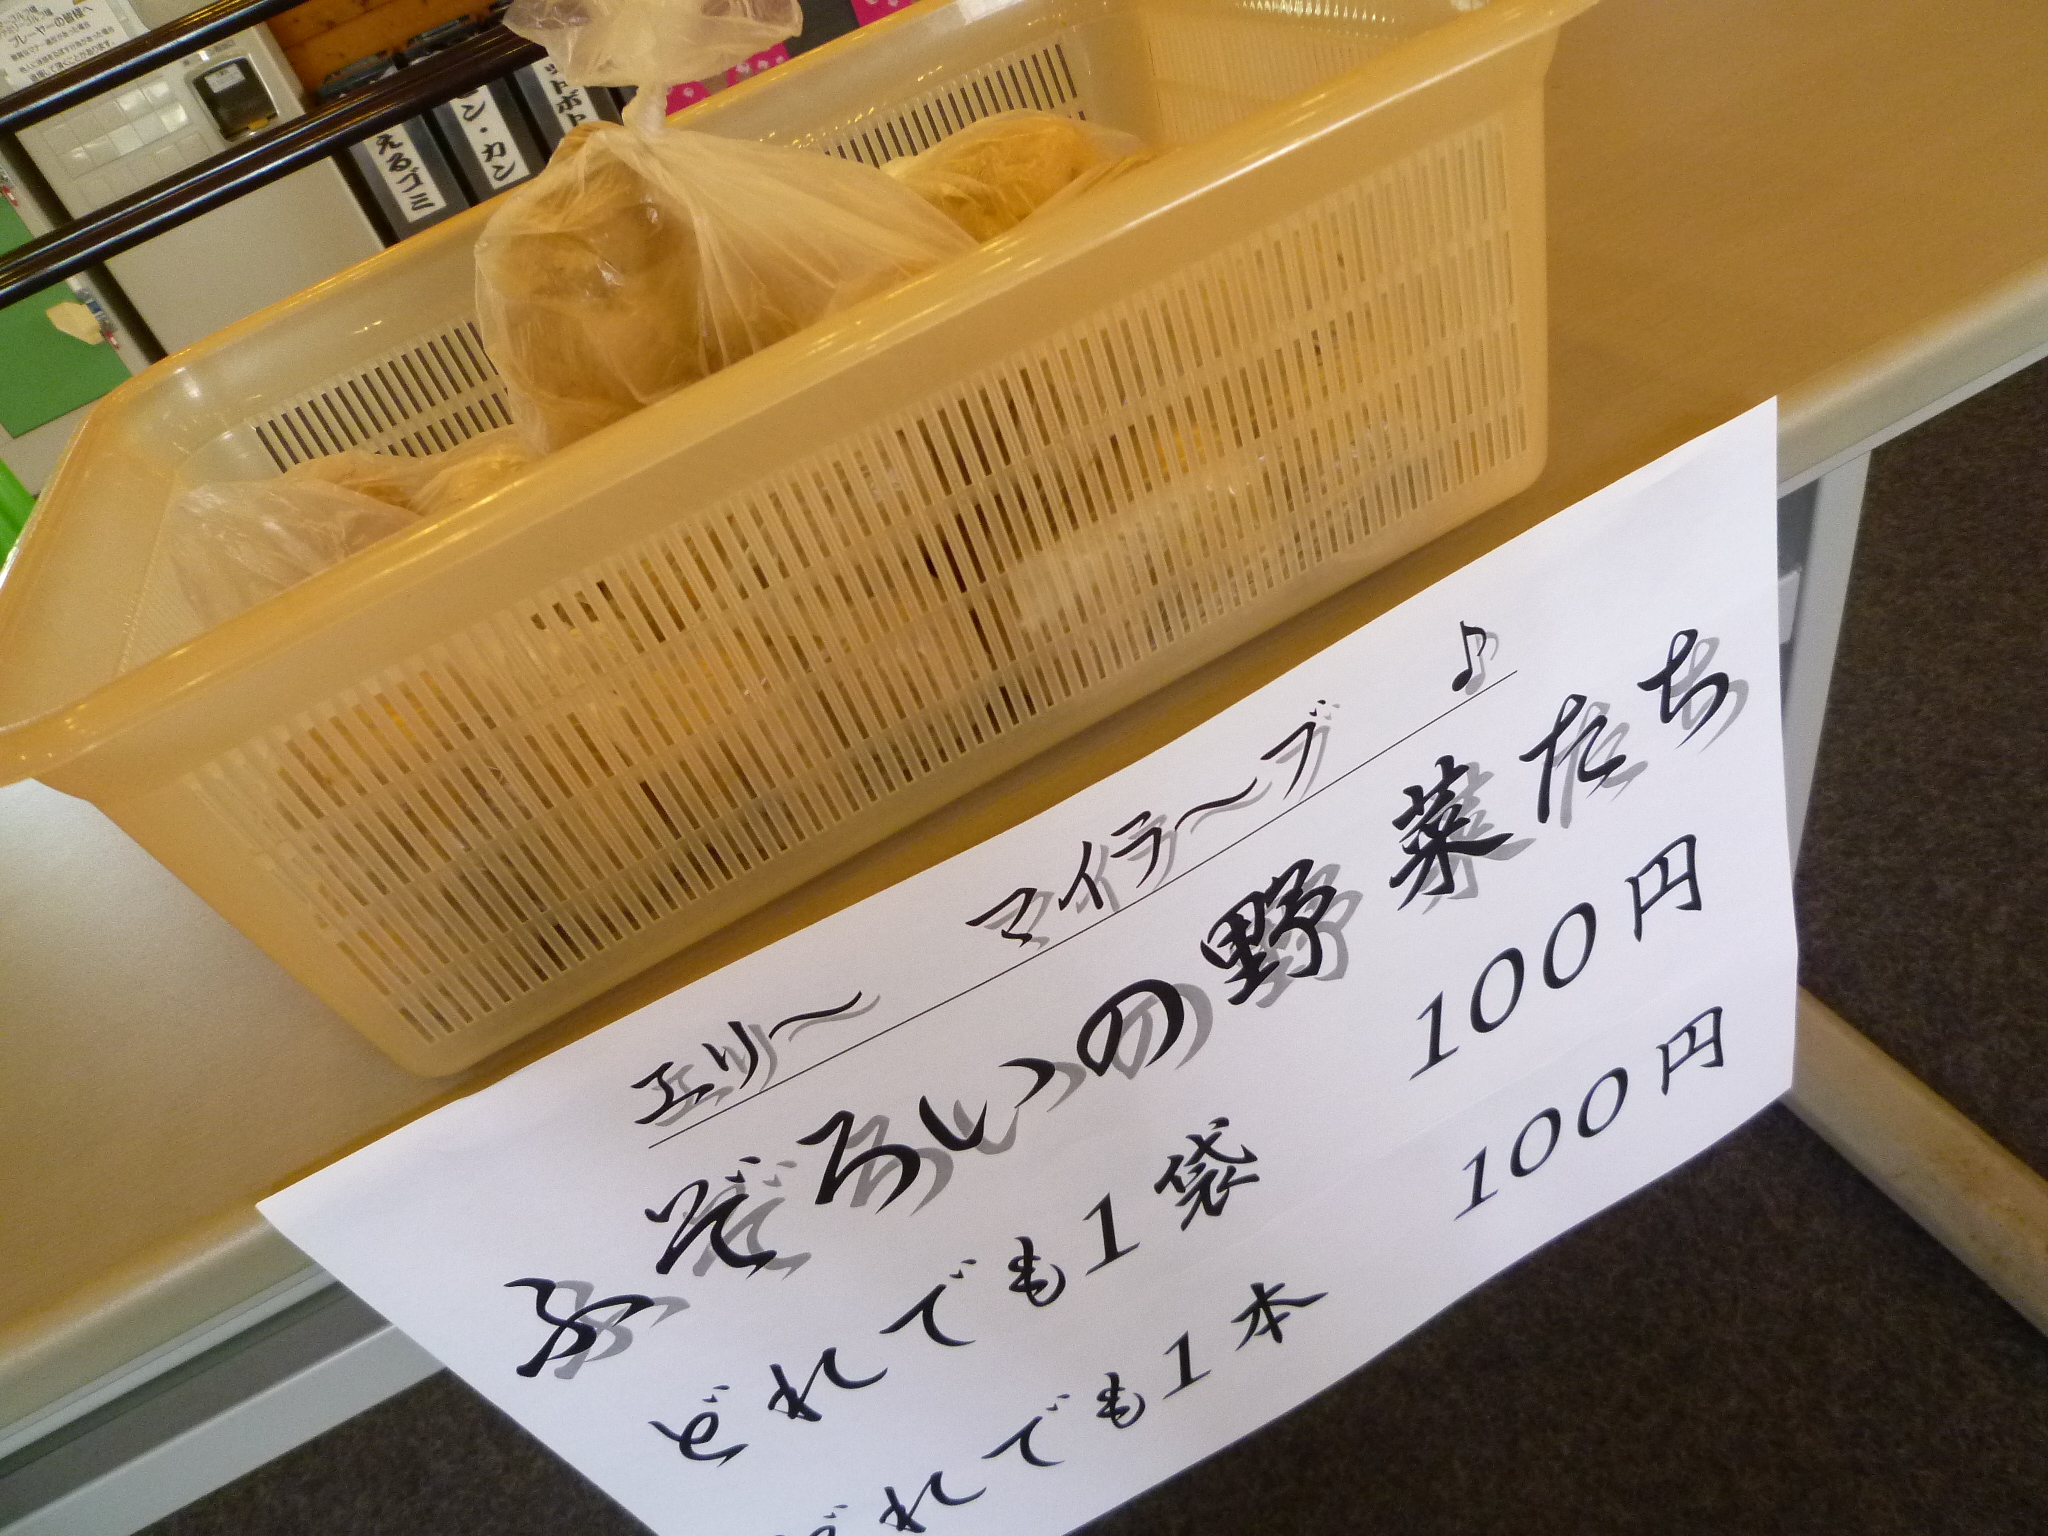 プレーヤーの皆様へ
えるゴミ
ン・カン
ットボト
エリ～ マイラ～ブ ♪
ふぞろいの野菜たち
どれでも1袋 100円
どれでも1本 100円